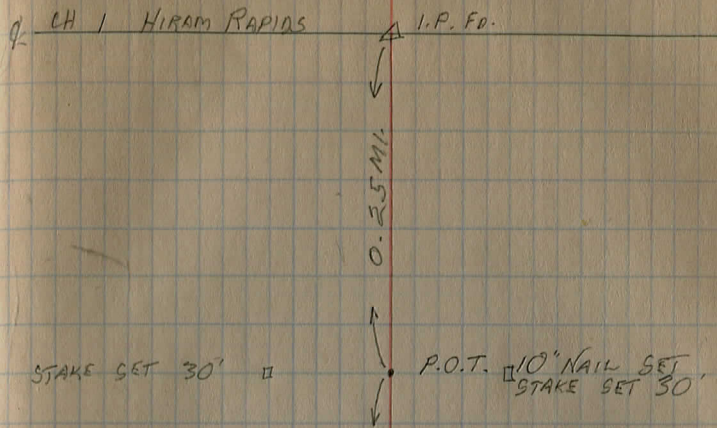 ℄ CH 1 HIRAM RAPIDS I.P. FD.
0.25 MI.
STAKE SET 30' P.O.T. 10" NAIL SET
STAKE SET 30'